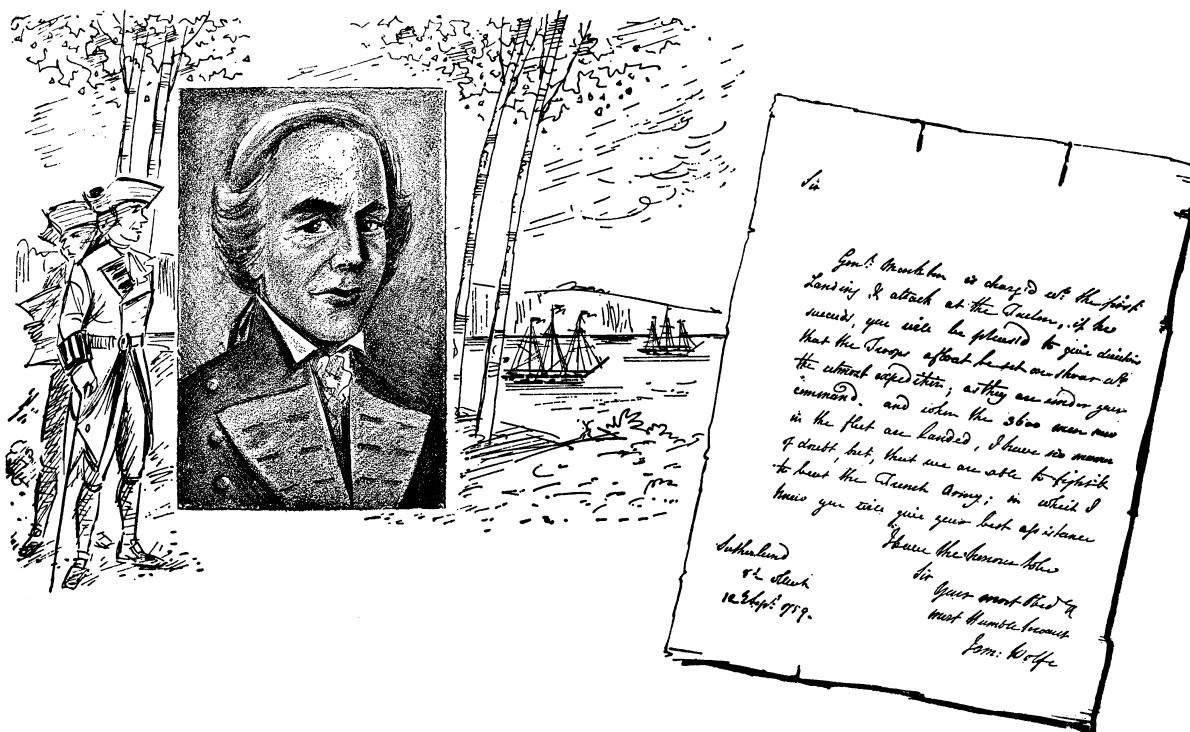 Sir
Genl. Monckton is charg'd wth the first
Landing & attack at the Foulon, if he
succeeds, you will be pleased to give directions
that the Troops afloat be set on shoar wth
the utmost expedition, as they are under your
command. and when the 3600 men now
in the fleet are landed, I have no manner
of doubt but, that we are able to fight &
to beat the French Army; in which I
know you will give your best assistance
I have the honour to be
Sir
Your most Obedt. &
most Humble Servant
Jam: Wolfe
Sutherland
o'clock
12 Sept. 1759.